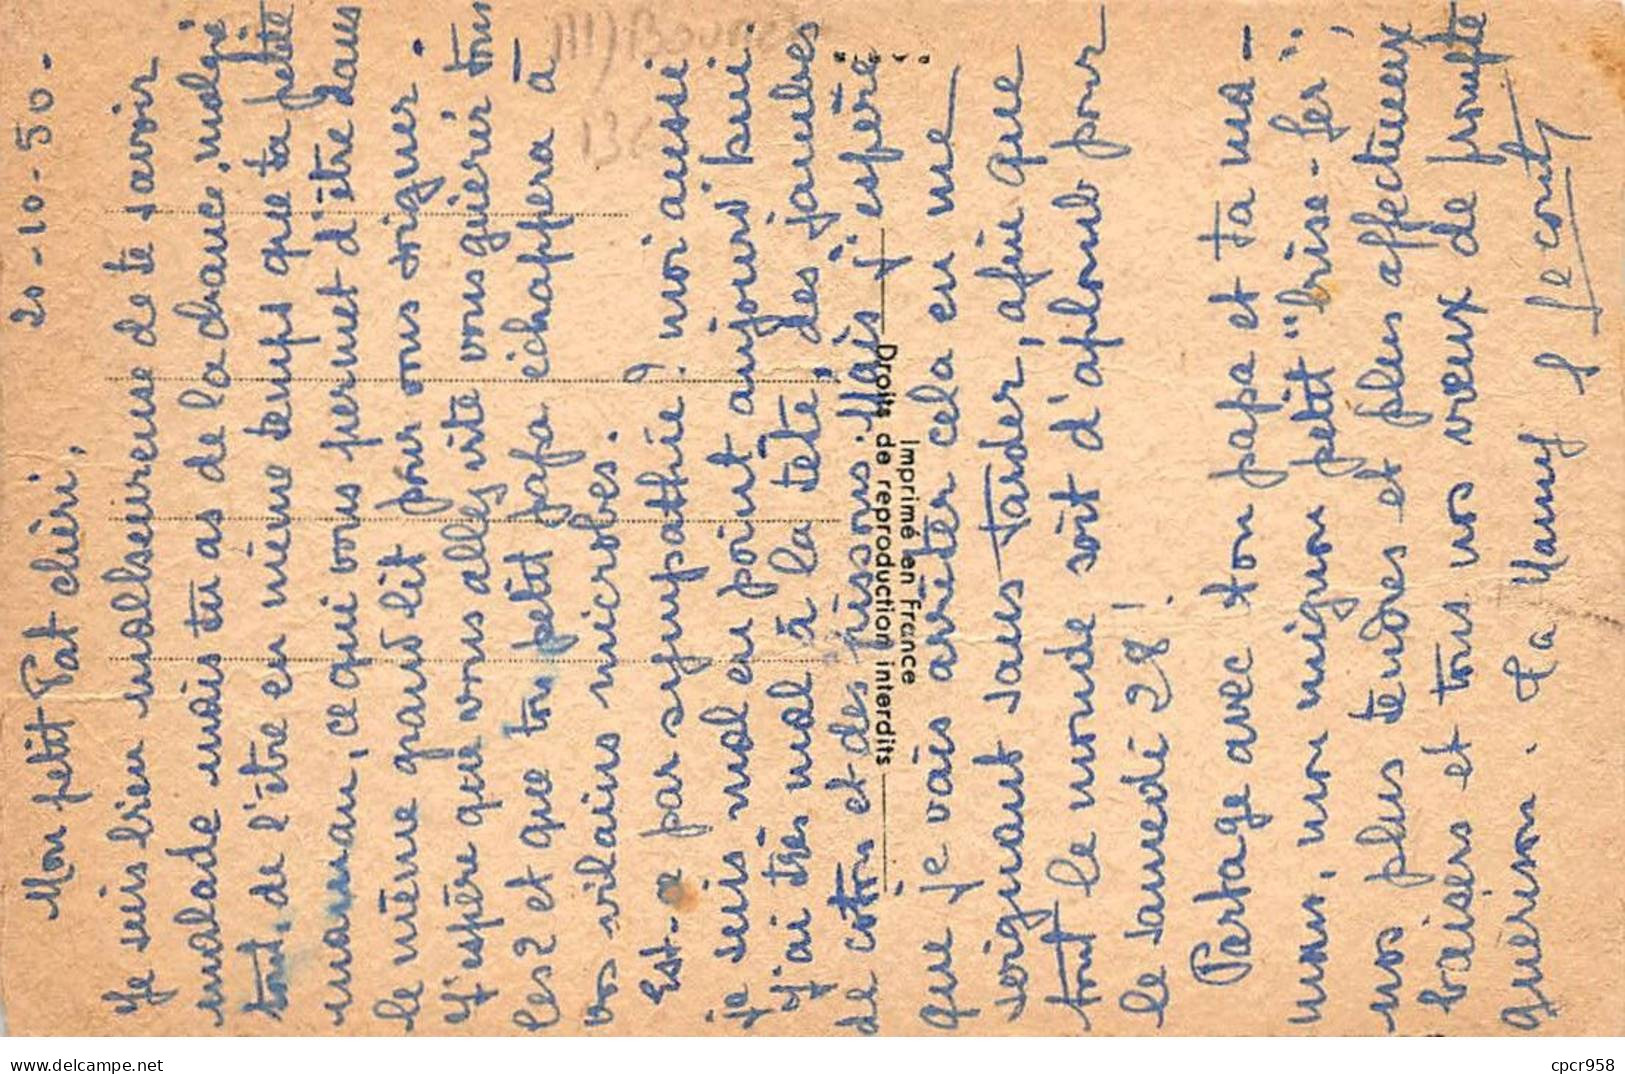 20-10-50-
Mon petit Pat chéri,
Je suis bien malheureuse de te savoir
malade mais tu as de la chance, malgré
tout, de l'être en même temps que ta petite
maman, ce qui vous permet d'être dans
le même grand lit pour vous soigner.
J'espère que vous allez vite vous guérir tous
les 2 et que ton petit papa échappera à
vos vilains microbes.
Est-ce par sympathie? moi aussi
je suis mal en point aujourd'hui:
j'ai très mal à la tête, des jambes
de coton et des frissons. Mais j'espère
que je vais arrêter cela en me
soignant sans tarder, afin que
tout le monde soit d'aplomb pour
le samedi 28!
Partage avec ton papa et ta ma-
man, mon mignon petit "brise-fer",
nos plus tendres et plus affectueux
baisers et tous nos vœux de prompte
guérison. Ta Mamy
Imprimé en France
Droits de reproduction interdits
cpcr958